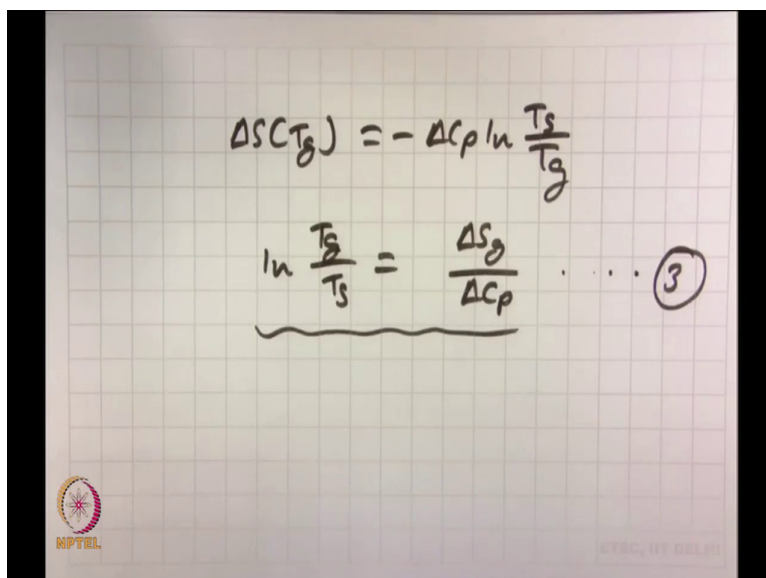 ΔS(Tg) = - ΔCp ln Ts/Tg
ln Tg/Ts = ΔSg/ΔCp ..... 3
NPTEL
ETSC, IIT DELHI